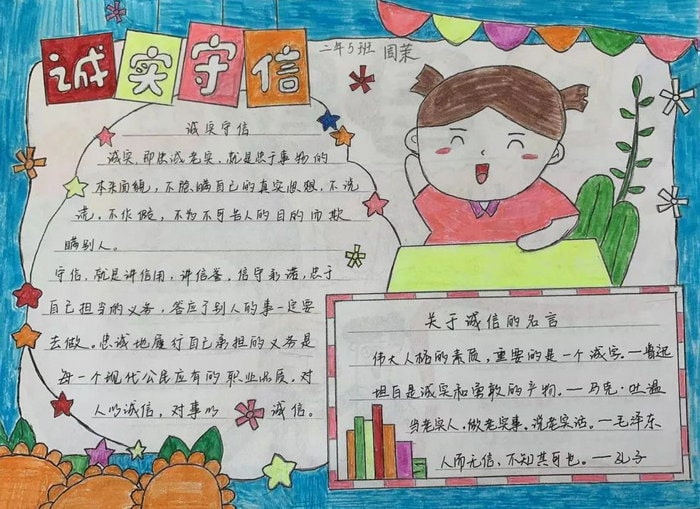 诚实守信
二年5班 周茉
诚实守信
诚实,即忠诚老实,就是忠于事物的
本来面貌,不隐瞒自己的真实思想,不说
谎,不作假,不为不可告人的目的而欺
瞒别人。
守信,就是讲信用,讲信誉,信守承诺,忠于
自己担当的义务,答应了别人的事一定要
去做。忠诚地履行自己承担的义务是
每一个现代公民应有的职业品质。对
人以诚信,对事以诚信。
关于诚信的名言
伟大人格的素质,重要的是一个诚字。—鲁迅
坦白是诚实和勇敢的产物。—马克·吐温
当老实人。做老实事。说老实话。—毛泽东
人而无信,不知其可也。—孔子